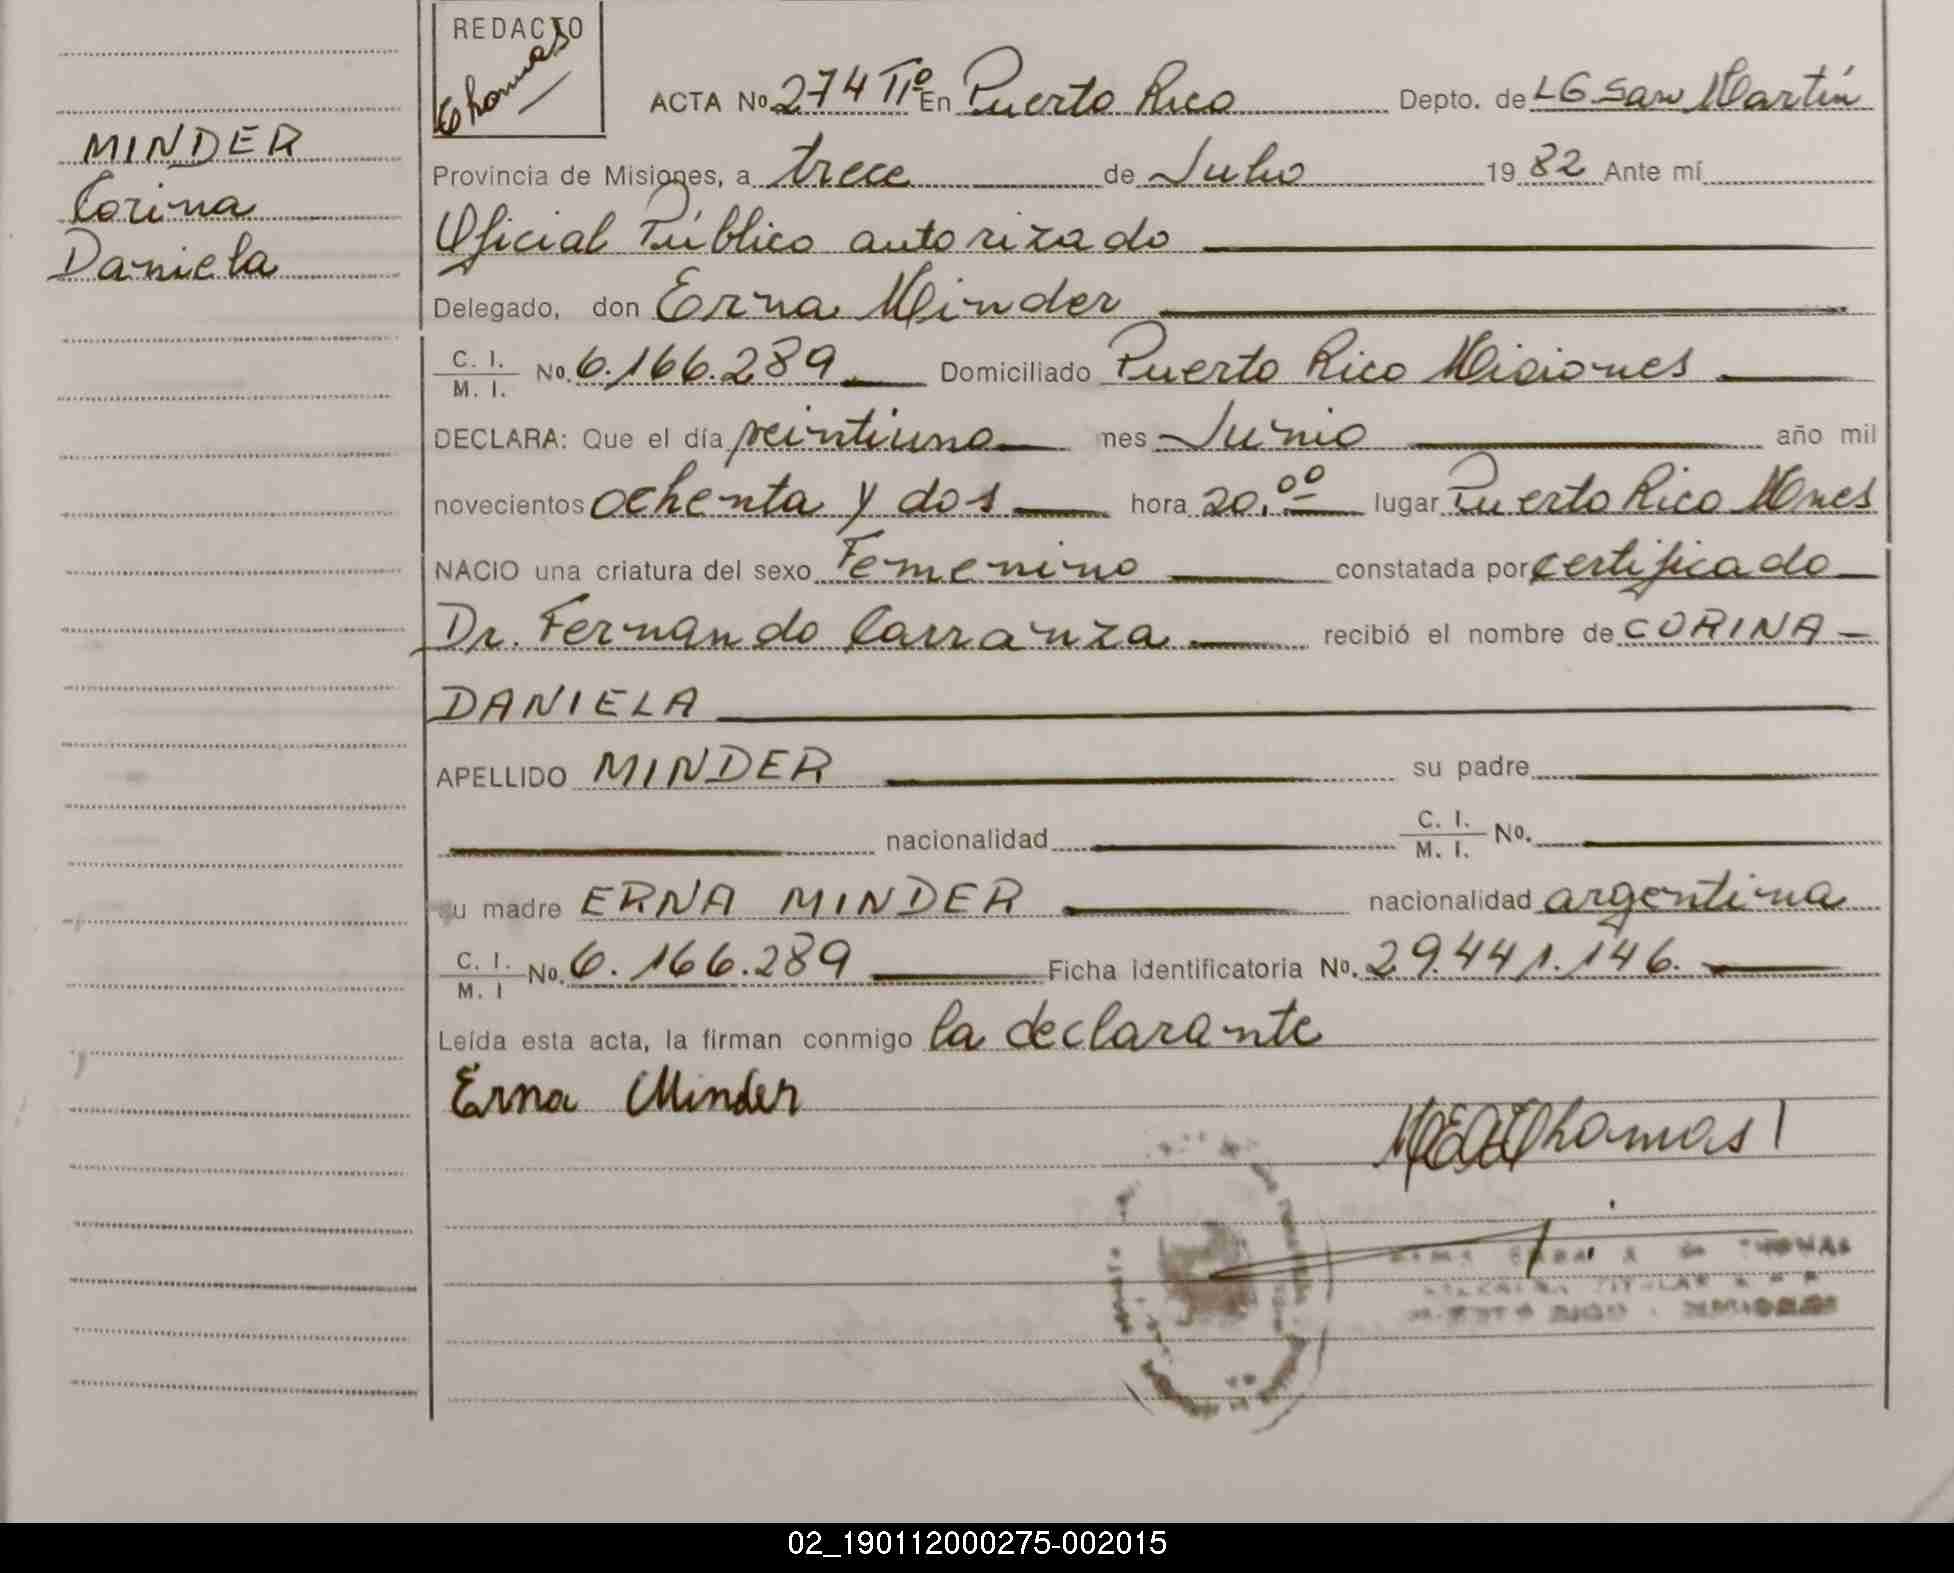 REDACTO
Thomas
ACTA No. 274 Tº En Puerto Rico Depto. de LG San Martín
MINDER
Corina
Daniela
Provincia de Misiones, a trece de Julio 1982 Ante mí
Oficial Público autorizado
Delegado, don Erna Minder
C. I. M. I. No. 6.166.289 Domiciliado Puerto Rico Misiones
DECLARA: Que el día veintiuno mes Junio año mil
novecientos ochenta y dos hora 20.00 lugar Puerto Rico Mnes
NACIO una criatura del sexo Femenino constatada por certificado
Dr. Fernando Carranza recibió el nombre de CORINA
DANIELA
APELLIDO MINDER su padre
nacionalidad C. I. M. I. No.
su madre ERNA MINDER nacionalidad argentina
C. I. M. I No. 6.166.289 Ficha identificatoria No. 29.441.146.
Leída esta acta, la firman conmigo la declarante
Erna Minder
Thomas
THOMAS
TITULAR
02_190112000275-002015